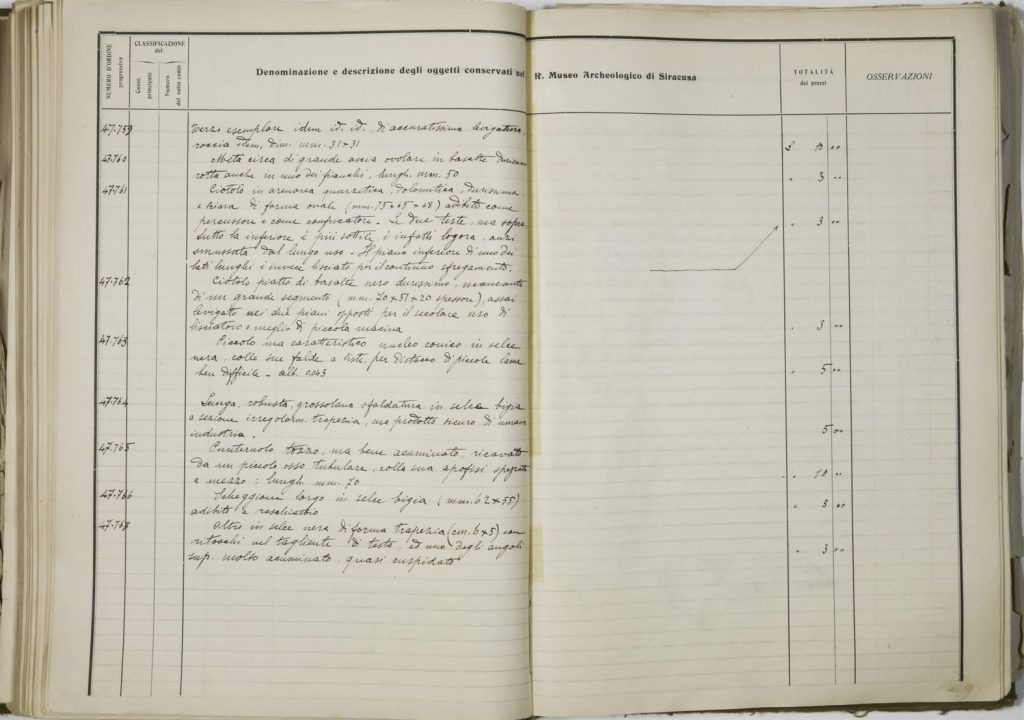 NUMERO D'ORDINE progressivo
CLASSIFICAZIONE del
Conto principale
Numero del sotto conto
Denominazione e descrizione degli oggetti conservati nel R. Museo Archeologico di Siracusa
TOTALITÀ dei prezzi
OSSERVAZIONI
47.759 Terzo esemplare idem id. id., di accuratissima levigatura,
roccia idem, dim. mm. 31 x 31 £ 10 "
47.760 Metà circa di grande ascia ovolare in basalte durissimo
rotta anche in uno dei fianchi, lungh. mm. 50 " 3 "
47.761 Ciotolo in arenorea quarzitica, dolomitica, durissima
e chiara di forma ovale (mm. 75 x 65 x 48) adibito come
percussore e come conficcatore - Le due teste, ma sopra
tutto la inferiore è più sottile, è infatti logora, anzi " 3 "
smussata dal lungo uso - Il piano inferiore di uno dei
lati lunghi è invece lisciato per il continuo sfregamento.
47.762 Ciotolo piatto di basalte nero durissimo, mancante
di un grande segmento (mm. 70 x 57 x 20 spessore), assai
levigato nei due piani opposti per il secolare uso di
lisciatoio o meglio di piccola macina " 3 "
47.763 Piccolo ma caratteristico nucleo conico in selce
nera, colle sue falde a liste, per distacco di piccole lame
ben difficile - alt. 0,043 " 5 "
47.764 Lunga, robusta, grossolana sfaldatura in selce bigia
a sezione irregolarm. trapezia, ma prodotto sicuro di umana
industria. 5 "
47.765 Punteruolo tozzo, ma bene acuminato, ricavato
da un piccolo osso tubulare, colla sua apofisi spezzata
a mezzo; lungh. mm. 70 " 10 "
47.766 Scheggione largo in selce bigia (mm. 62 x 55)
adibito a raschiatoio " 3 "
47.767 Altro in selce nera di forma trapezia (cm. 6 x 5) con
ritocchi nel tagliente di testa, ed uno degli angoli
sup. molto acuminato, quasi cuspidato " 3 "